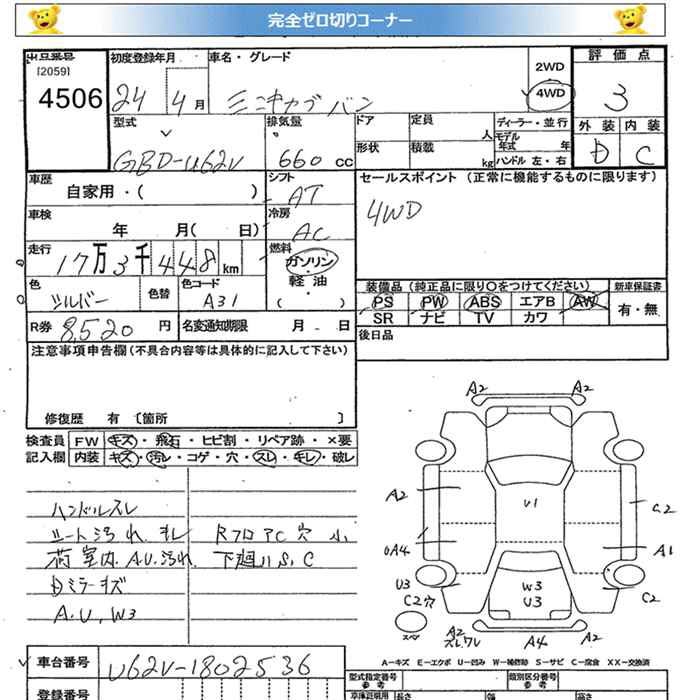 完全ゼロ切りコーナー
出品番号
[2059]
4506
初度登録年月
24 4月
車名・グレード
ミニキャブバン
2WD
4WD
評価点
3
外装 内装
D C
型式
GBD-U62V
排気量
660 cc
ドア
定員
人
形状
積載
kg
ディーラー・並行
モデル年式 年
ハンドル 左・右
車歴
自家用・( )
シフト
AT
セールスポイント (正常に機能するものに限ります)
4WD
車検
年 月( 日)
冷房
AC
走行
17万3千448km
燃料
ガソリン
軽油
( )
色
シルバー
色替
色コード
A31
装備品(純正品に限り○をつけてください)
新車保証書
PS PW ABS エアB AW
有・無
SR ナビ TV カワ
R券 8,520 円
名変通知期限 月 日
後日品
注意事項申告欄(不具合内容等は具体的に記入して下さい)
修復歴 有 [箇所 ]
検査員 FW キズ・飛石・ヒビ割・リペア跡・×要
記入欄 内装 キズ・汚レ・コゲ・穴・スレ・キレ・破レ
ハンドルスレ
シート汚れ キレ RフロアC穴 小
荷室内 A.U.汚れ 下廻りS,C
Dミラーキズ
A.U,W3
A2 A2
A2
U1
C2
UA4
A1
U3
C2穴
W3
U3
C2
スペア
A2
スレワレ
A4
A2
A-キズ E-エクボ U-凹み W-補修跡 S-サビ C-腐食 XX-交換済
車台番号 U62V-1802536
型式指定番号
参考
類別区分番号
参考
登録番号
車検証明用
参考
長さ
幅
高さ